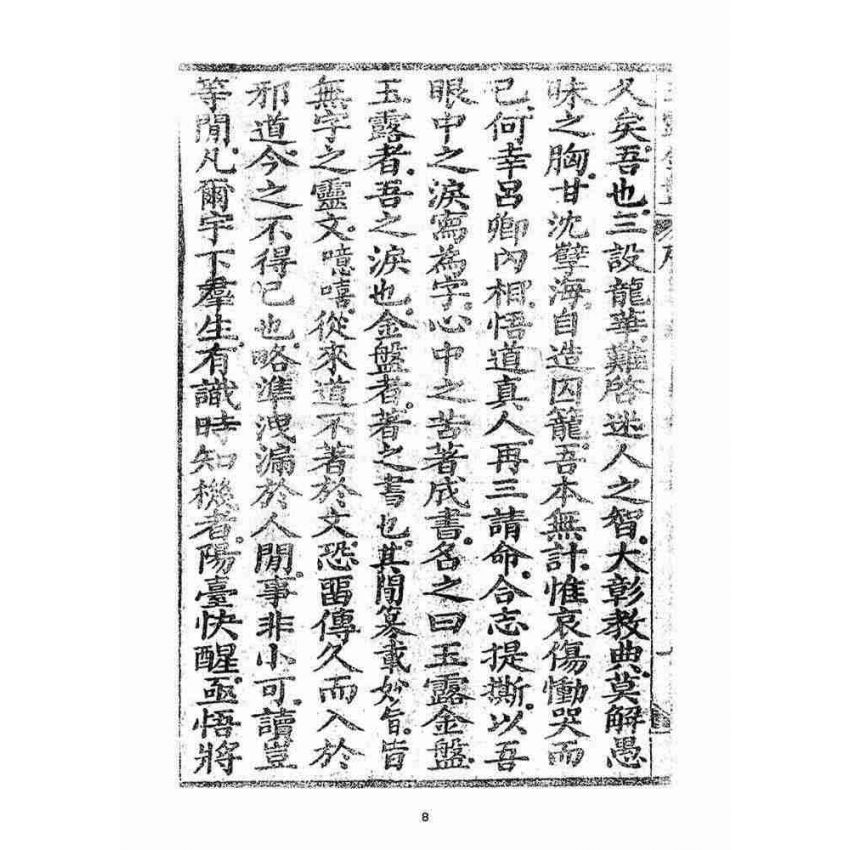 久矣。吾也。三設龍華。難啓迷人之智。大彰教典。莫解愚
昧之胸。甘沈孽海。自造囚籠。吾本無計。惟哀傷慟哭而
已。何幸呂卿內相。悟道真人。再三請命。合志提撕。以吾
眼中之淚寫為字。心中之苦著成書。名之曰玉露金盤。
玉露者。吾之淚也。金盤者。著之書也。其間纂載妙旨。皆
無字之靈文。噫嘻。從來道不著於文。恐畱傳久而入於
邪道。今之不得已也。略準洩漏於人閒。事非小可。讀豈
等閒。凡爾宇下羣生。有識時知機者。陽臺快醒。亟悟將
8